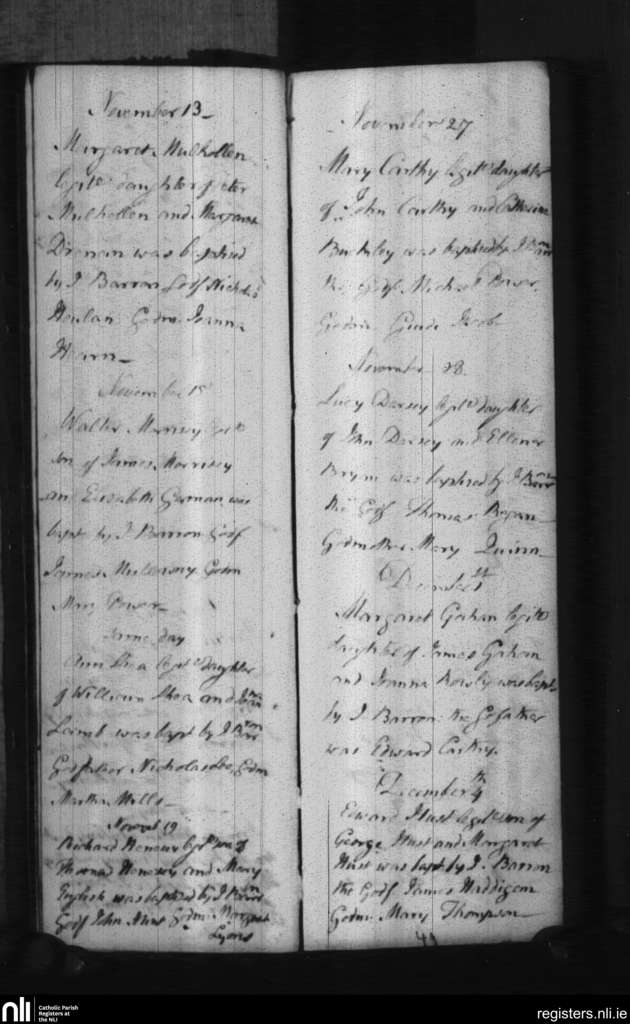 November 13
Margaret Mulhollen
legite daughter of Peter
Mulhollen and Margaret
Drenan was baptized
by J Barron Godf Nicholas
Houlan Godm Joanna
Hearn
November 15
Walter Morrisey legite
son of James Morrisey
and Elizabeth German was
bapt by J. Barron Godf
James Godm
Mary Power
same day
Ann Shea legite daughter
of William Shea and Joanna
Lamb was bapt by J Barron
Godfather Nicholas Godm
Martha Mills
Novemb 19
Richard Henesey legte son of
Thomas Henesey and Mary
English was baptized by J Barron
Godf John Hunt Godm Margaret
Lyons
November 27
Mary Carthy legite daughter
of John Carthy and Catherine
Buckley was baptized by J Barron
the Godf Michael Power
Godm
November 28
Lucy Darsey legite daughter
of John Darsey and Ellenor
was baptized by J Barron
the Godf Thomas Regan
Godmother Mary Quinn
December 1st
Margaret Gahan legite
daughter of James Gahan
and Joanna was bapt
by J. Barron the Gofather
was Edward Carthy.
December 4th
Edward Hust legite son of
George Hust and Margaret
Hust was bapt by J. Barron
the Godf James Maddigan
Godm Mary Thompson
nli
Catholic Parish
Registers at
the NLI
registers.nli.ie